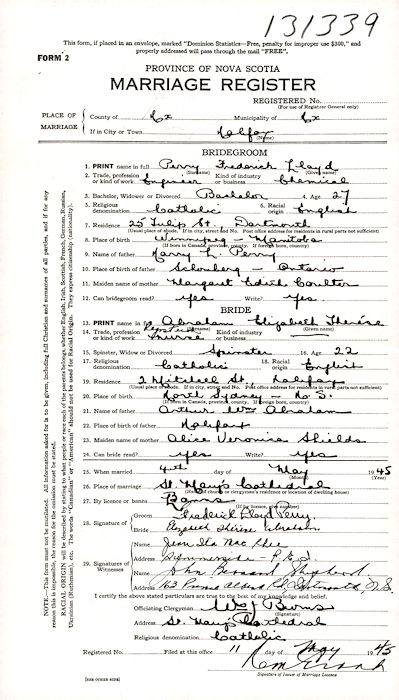 131339
This form, if placed in an envelope, marked "Dominion Statistics—Free, penalty for improper use $300," and
properly addressed will pass through the mail "FREE".
FORM 2
PROVINCE OF NOVA SCOTIA
MARRIAGE REGISTER
REGISTERED No.
(For use of Registrar General only)
PLACE OF MARRIAGE
County of Hx Municipality of Hx
If in City or Town Halifax
(Name)
BRIDEGROOM
1. PRINT name in full Perry Frederick Lloyd
(Surname) (Given name)
2. Trade, profession or kind of work Engineer Kind of industry or business Chemical
3. Bachelor, Widower or Divorced Bachelor 4. Age 27
5. Religious denomination Catholic 6. Racial origin English
7. Residence 25 Tulip St. Dartmouth
(Usual place of abode. If in city, street and No. Post office address for residents in rural parts not sufficient)
8. Place of birth Winnipeg - Manitoba
(If in Canada, province, county. If foreign born, country)
9. Name of father Harry L. Perry
10. Place of birth of father Schomberg - Ontario
11. Maiden name of mother Margaret Edith Coulter
12. Can bridegroom read? yes Write? yes
BRIDE
13. PRINT name in full Abraham Elizabeth Therése
(Surname) (Given name)
14. Trade, profession or kind of work Registered Nurse Kind of industry or business
15. Spinster, Widow or Divorced Spinster 16. Age 22
17. Religious denomination Catholic 18. Racial origin English
19. Residence 2 Mitchell St. Halifax
(Usual place of abode. If in city, street and No. Post office address for residents in rural parts not sufficient)
20. Place of birth North Sydney - N.S.
(If born in Canada, province, county. If foreign born, country)
21. Name of father Arthur Wm Abraham
22. Place of birth of father Halifax
23. Maiden name of mother Alice Veronica Shields
24. Can bride read? yes Write? yes
25. When married 4th day of May 1945
(Month)
26. Place of marriage St. Mary's Cathedral
(Name of church or clergyman's residence or location of dwelling house)
27. By licence or banns Banns
(If by licence, give number)
28. Signature of
Groom Frederick Lloyd Perry
Bride Elizabeth Therese Abraham
29. Signatures of Witnesses
Name Jean Ita Mac
Address Summerside - P.E.I.
Name John Bernard Shepherd
Address 163 Prince Albert Rd Dartmouth N.S.
I certify the above stated particulars are true to the best of my knowledge and belief.
Officiating Clergyman Burns
Address St. Mary's Cathedral
Religious denomination Catholic
Registered No. Filed at this office 11 day of May 1945
Signature of Issuer of Marriage Licence
[SEE OTHER SIDE]
NOTE.—This form must not be mutilated. All information asked for is to be given, including full Christian and surnames of all parties, and if for any
reason this is impossible, the reason for the omission must be stated.
RACIAL ORIGIN will be described by stating to what people or race each of the parents belongs, whether English, Irish, Scottish, French, German, Russian,
Ukrainian (Ruthenian), etc. The words "Canadian" or "American" should not be used for Racial Origin. They express citizenship (nationality).